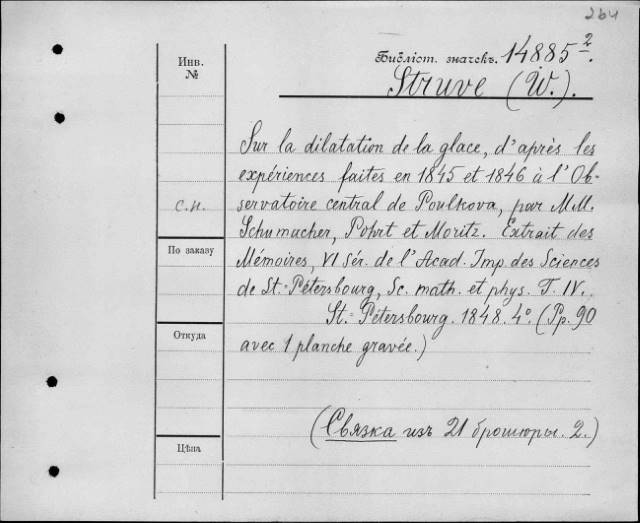 264
Инв.
№
Библіот. значекъ. 14885².
Struve (W.).
Sur la dilatation de la glace, d'après les
expériences faites en 1845 et 1846 à l'Ob-
servatoire central de Poulkova, par M.M.
Schumacher, Pohrt et Moritz. Extrait des
Mémoires, VI Sér. de l'Acad. Imp. des Sciences
de St.-Pétersbourg, Sc. math. et phys. T. IV.
St.-Pétersbourg. 1848. 4° (Pp. 90
avec 1 planche gravée.)
(Связка изъ 21 брошюры. 2.)
с.н.
По заказу
Откуда
Цѣна